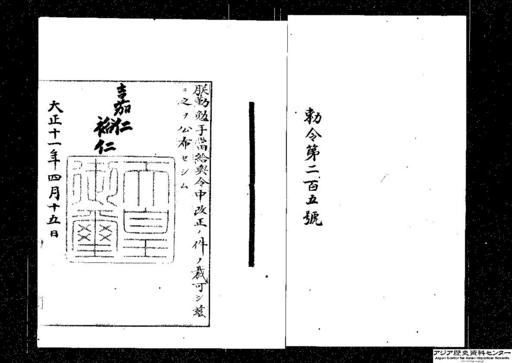 勅令第二百五號
朕勤勉手當給與令中改正ノ件ヲ裁可シ茲
ニ之ヲ公布セシム
嘉仁
裕仁
天皇
御璽
大正十一年四月十五日
アジア歴史資料センター
Japan Center for Asian Historical Records